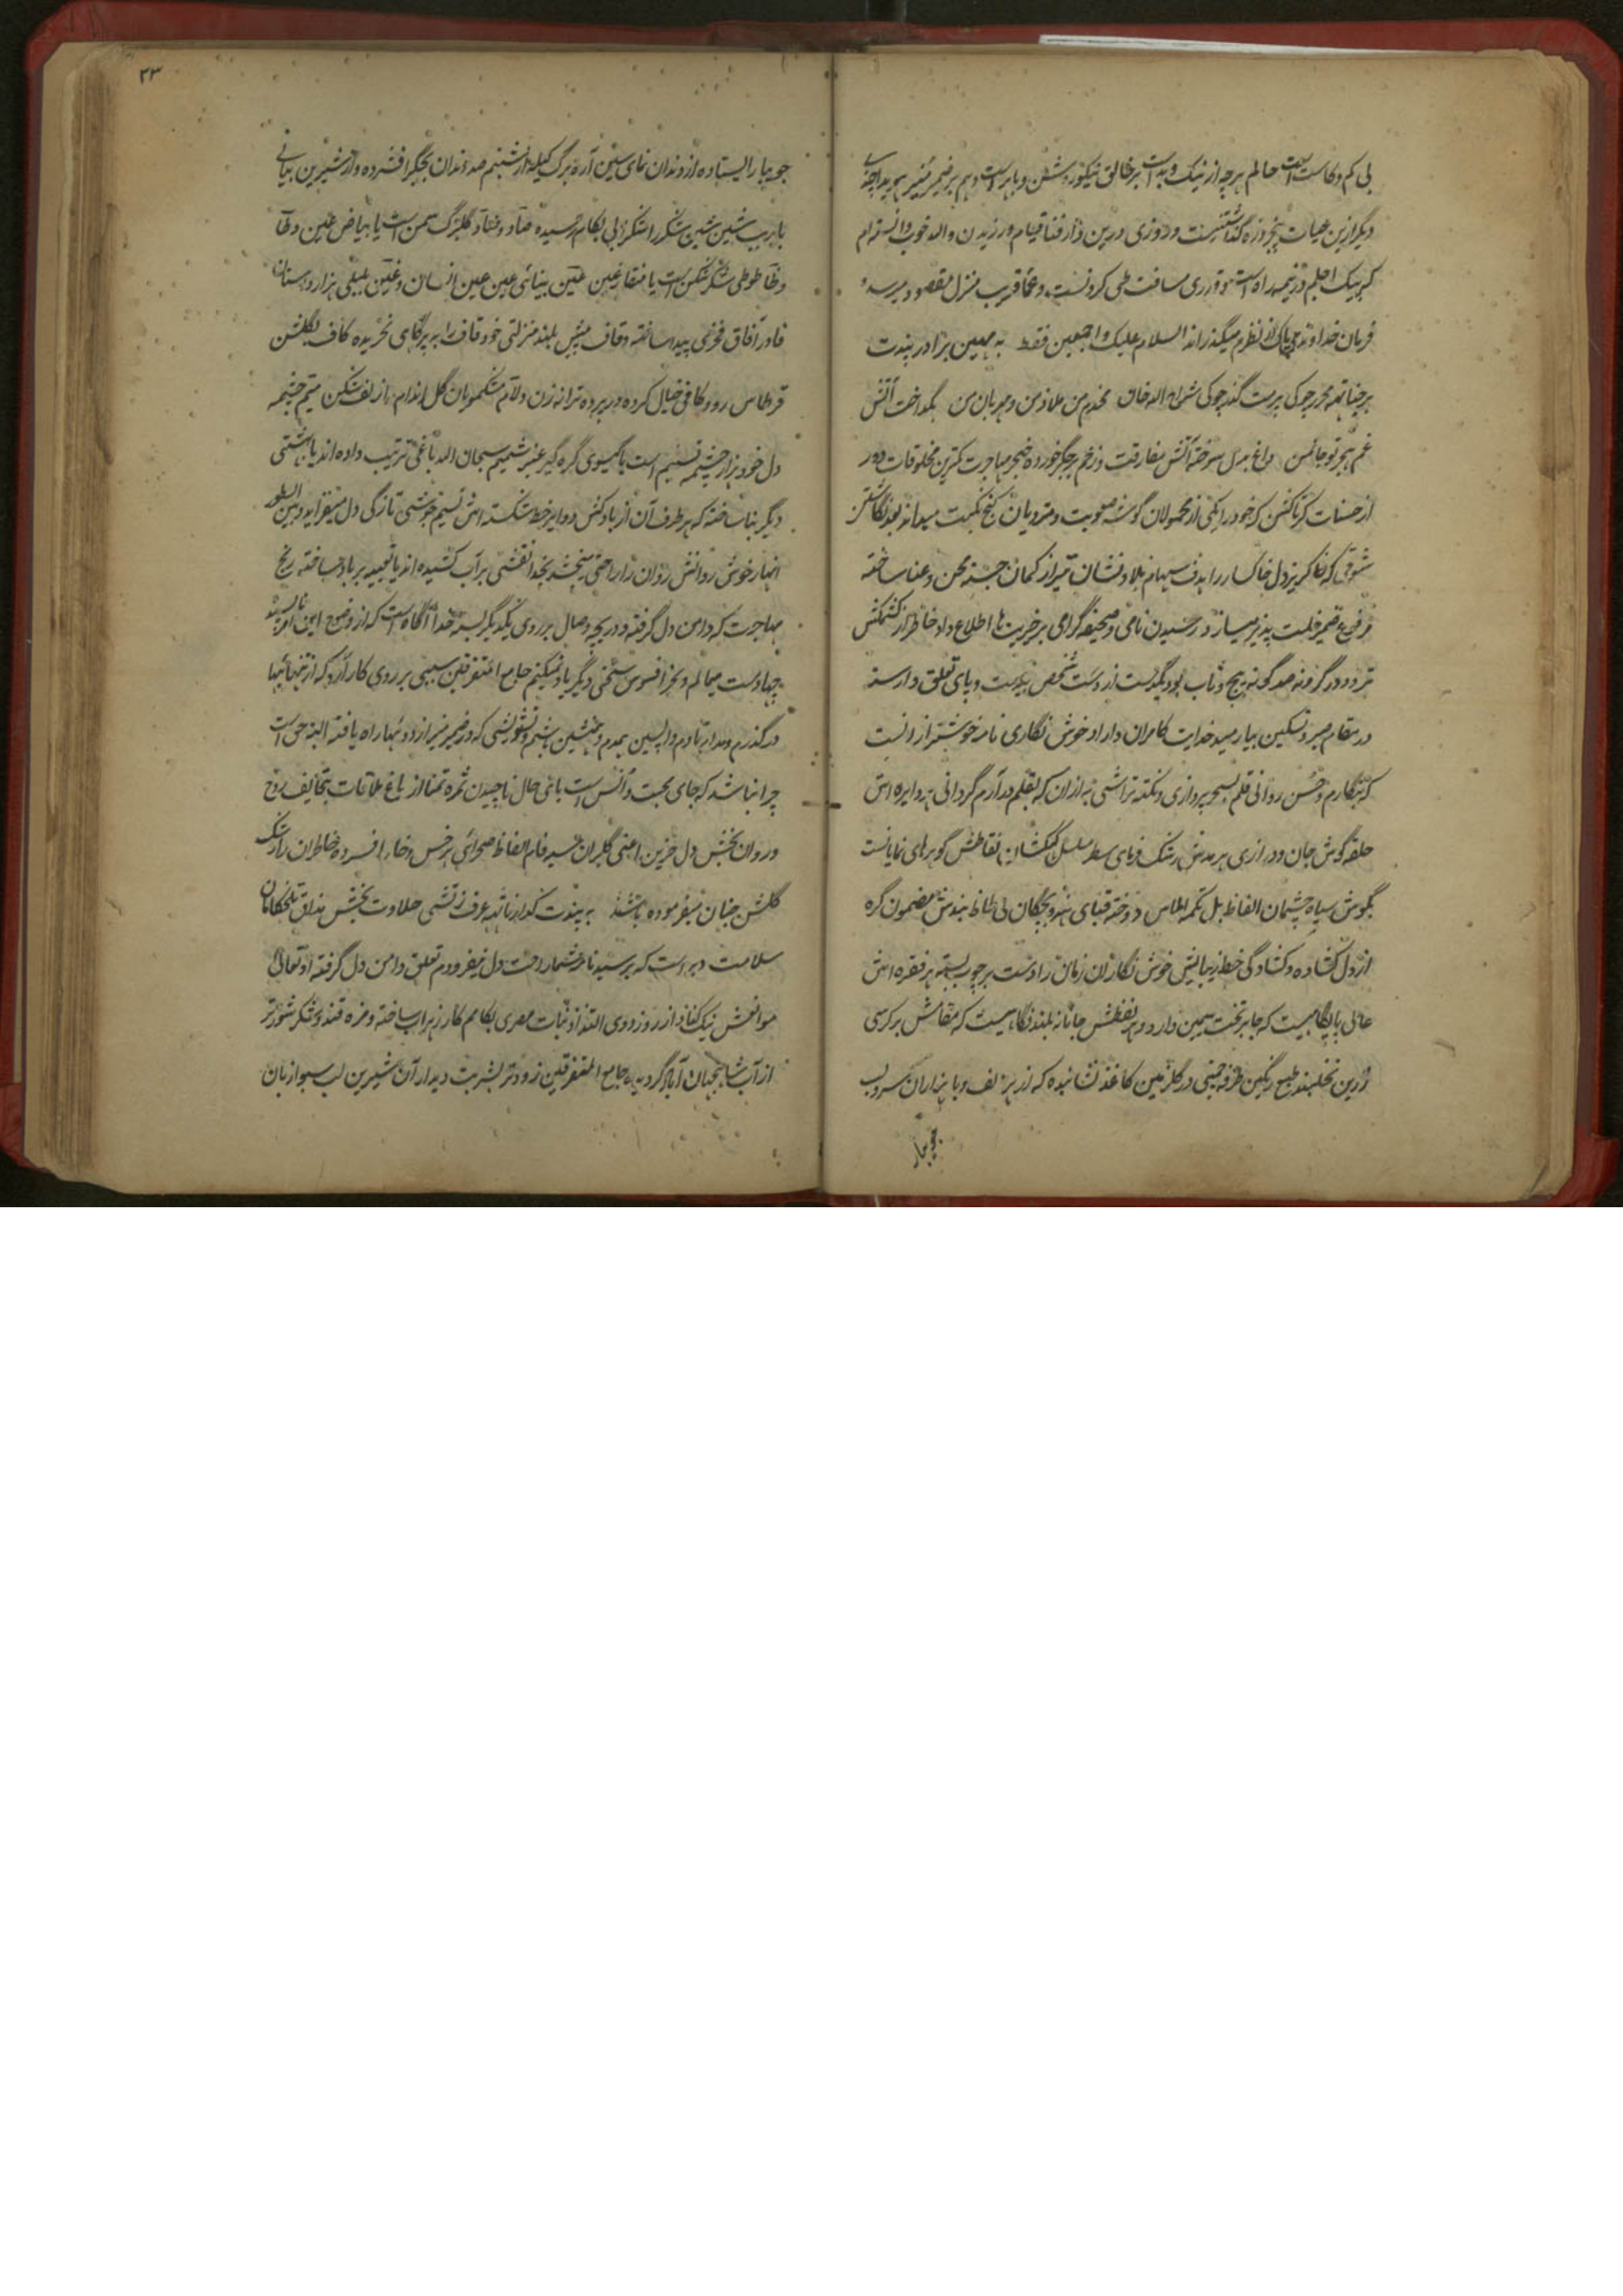 بی کم و کاست است حالم هرچه از نیک و بد است بر خالق نیکو روشن و باهر است و هم بر ضمیر منیر هویدا چه
دیگر ازین حیات پنجروزه گذشتنیست و روزی درین دار فنا قیام ورزیدن والله خوب دانسته‌ام
که پیک اجلم در نیمه راه است و قدری مسافت طی کردنست و عنقریب منزل مقصود میرسد و
فرمان خداوند حی پاک از نظرم میگذراند السلام علیک و اجمعین فقط به مهین برادر پندت
مخدوم من ملاذ من و مهربان من بگداخت آتش
غم هجر تو جانمن داغ بدل سوخته آتش مفارقت و زخم بر جگر خورده خنجر مهاجرت کمترین مخلوقات دور
از حسنات که خود را یکی از محمولان گوشه صعوبت و مترویان کنج نکبت میداند بعد نگاشتن
شوقی که دل خاکسار را هدف سهام بلا و نشان تیر از کمان جسته محن و عنا ساخته
مرفوع ضمیر خلت پذیر میسازد رسیدن نامی و صحیفه گرامی بر خیریت‌ها اطلاع داد خاطر از کشمکش
تردد در گرو صد گونه پیچ و تاب بود یکدست از دست شخص و پای تعلق وارسته
در مقام صبر و تسکین بیارمید خدایت کامران دارد خوش نگاری نامه خوشتر از آنست
که بنگارم و حسن روانی قلم بسحر پردازی و نکته تراشی به ازان که بقلم در آرم گردانی هر دایره اش
حلقه گوش جان و درازی هر مدش رشک فرمای سطر سلسل کهکشان نقاطش گوهرهای نمایانست
بگوش سیاه چشمان الفاظ بل تکمه الماس دوخته قبای بندش مضمون گره
از دل کشاده و کشادگی خط زیبایش خوش نگاران زمان را دست بر چوب بسته هر فقره اش
عالی پایگاهیست که جا بر تخت سیمین دارد و هر لفظش جانانه بلند نگاهیست که مقامش بر کرسی
زرین نخلبند طبع رنگین طرفه چمنی در گلزمین کاغذ نشانیده که از هر الف وبا هزاران سرو لب
جویبار
۲۳
جویبار ایستاده از دندان‌های سین اره برگ گیله از شبنم صد دندان بجگر افشرده و از شیرین بیانی
شین شکر را شکر لبی بکام رسیده صاد و ضاد گلبرگ سمن است یا بیاض عین و طا
و ظا طوطی شکر شکن است یا منقار عین عین بینائی عین عین انسان و غین بلبلی هزار داستان
فا در آفاق فخری پیدا ساخته و قاف پیش بلند منزلتی خود قاف را بر پرکاهی نخریده کاف بگلشن
قرطاس رود کافی خیال کرده در پرده ترانه زن و لام مشکمویان گل اندام را زلف مشکین میم چشمه
دل خود بر از چشمه تسنیم است یا گیسوی گره گیر عنبر شمیم سبحان الله باغی ترتیب داده اند یا بهشتی
دیگر بنا ساخته که هر طرف آن از باد کش دوایر خط شکسته اش نسیم خوشی تازگی دل میفزاید و بین السطور
انهار خوش روانش روان را راحتی میبخشد بخدا نقشی بر آب کشیده اند یا تعبیه بر باد ساخته رنج
مهاجرت که دامن دل گرفته و دریچه وصال بر روی یکدیگر بسته خدا آگاه است که از وضع این امر ناپسند
چها دست میمالم و بجز افسوس سخنی دیگر یاد نمیکنم جامع المتفرقین سببی بر روی کار آرد که از تنهائیها
در گذرم و مدام تا دم واپسین همدم و همنشین باشم و تشویشی که در ضمیر منیر از دوئیها راه یافته البته حق است
چرا نباشد که جای محبت و انس است باغی حال نا چیدن ثمره تمنا از باغ ملاقات بتحائف روح
و روان بخش دل حزین اعنی گلبران سبز فام الفاظ صحرای پر خس و خار افسرده خاطران را رشک
گلشن جنان میفرموده باشند به پندت حلاوت بخش مذاق تلخکامان
سلامت دیر است که پرسید نامه شما راحت دل نیفزود و غم تعلق دامن دل گرفته او تعالی
موانعش نیک کناد از روز دوی التذاذ نبات مصری بکامم کار زهراب ساخته و مزه قند و شکر شورتر
از آب شاهجهان آباد گردیده جامع المتفرقین زودتر بشربت دیدار آن شیرین لب سبو از بان